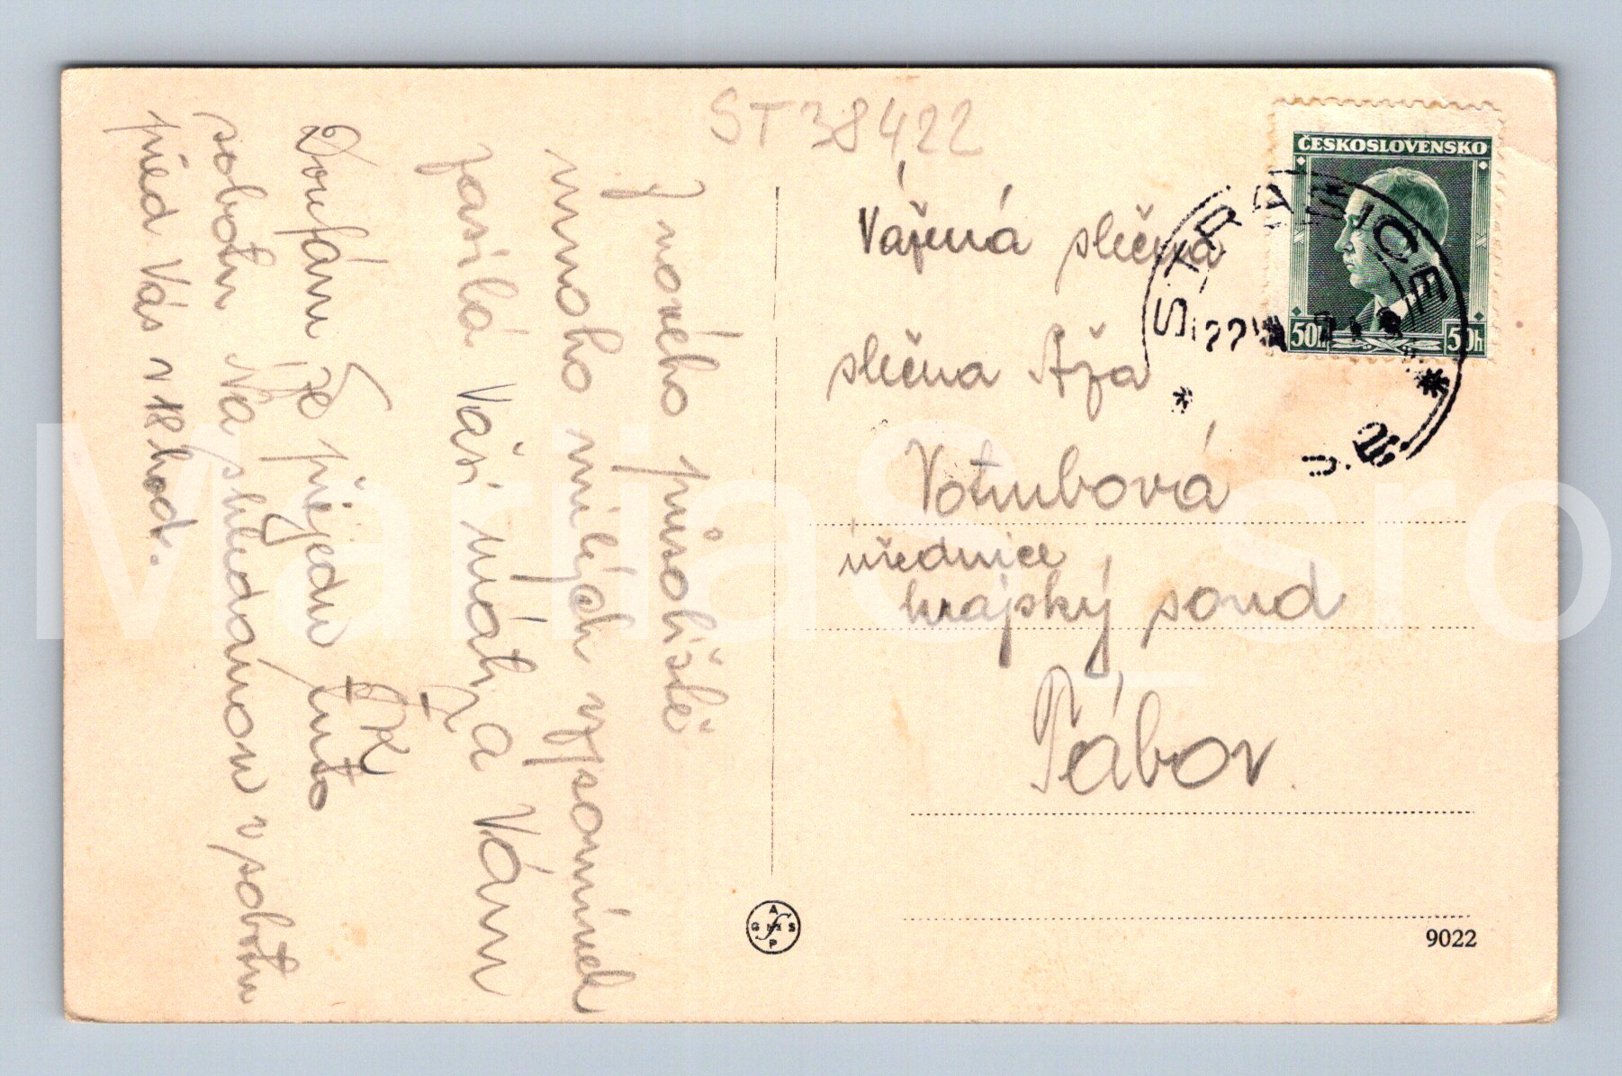 ST 38422
Z nového působiště
mnoho milých vzpomínek
zasílá Váší úctě a Vám
Doufám že přijedu tuto
sobotu Na shledanou v sobotu
před Vás v 18 hod.
ČESKOSLOVENSKO
50h 50h
STRAŠICE
Vážená slečna
slečna Aža
Votrubová
úřednice
krajský soud
Tábor.
9022
MarijaS_sro